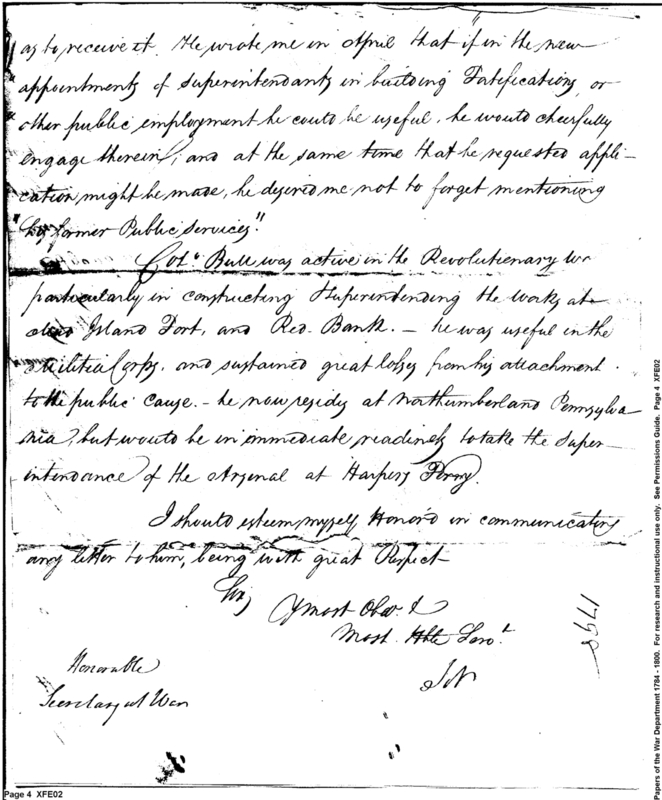 as to receive it. He wrote me in April that if in the new
appointments of Superintendants in building Fortifications or
other public employment he could be useful, he would cheerfully
engage therein, and at the same time that he requested appli-
cation might be made, he desired me not to forget mentioning
"his former Public Services".
Colo. Bull was active in the Revolutionary
particularly in constructing & Superintending the works at
Island Fort, and Red-Bank. — he was useful in the
Militia Corps, and sustained great losses from his attachment
to the public cause. — he now resides at Northumberland Pennsylva
nia, but would be in immediate readiness to take the Super-
intendance of the Arsenal at Harpers Ferry.
I should esteem myself Honor'd in communicating
any letter to him, being with great Respect
Sir,
Y most Obed &
most Hble Servt.
JN
Honorable
Secretary at War
1798
Page 4 XFE02
Papers of the War Department 1784 - 1800. For research and instructional use only. See Permissions Guide. Page 4 XFE02